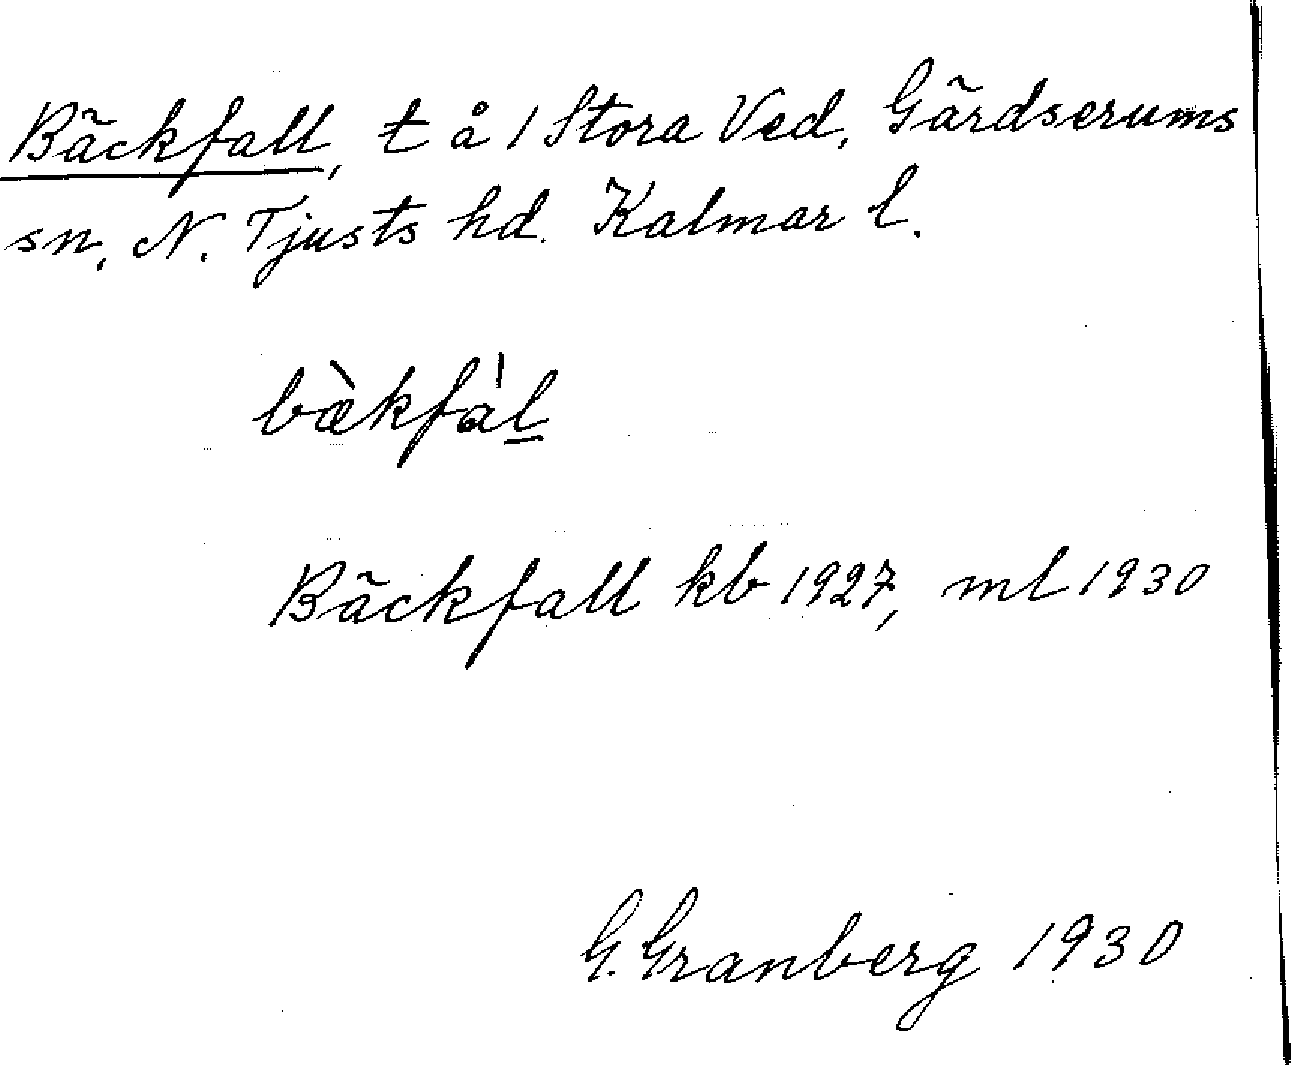 Bäckfall, t å 1 Stora Ved, Gärdserums
sn, N. Tjusts hd. Kalmar l.
bæ̀kfàl
Bäckfall kb 1927, ml 1930
G. Granberg 1930